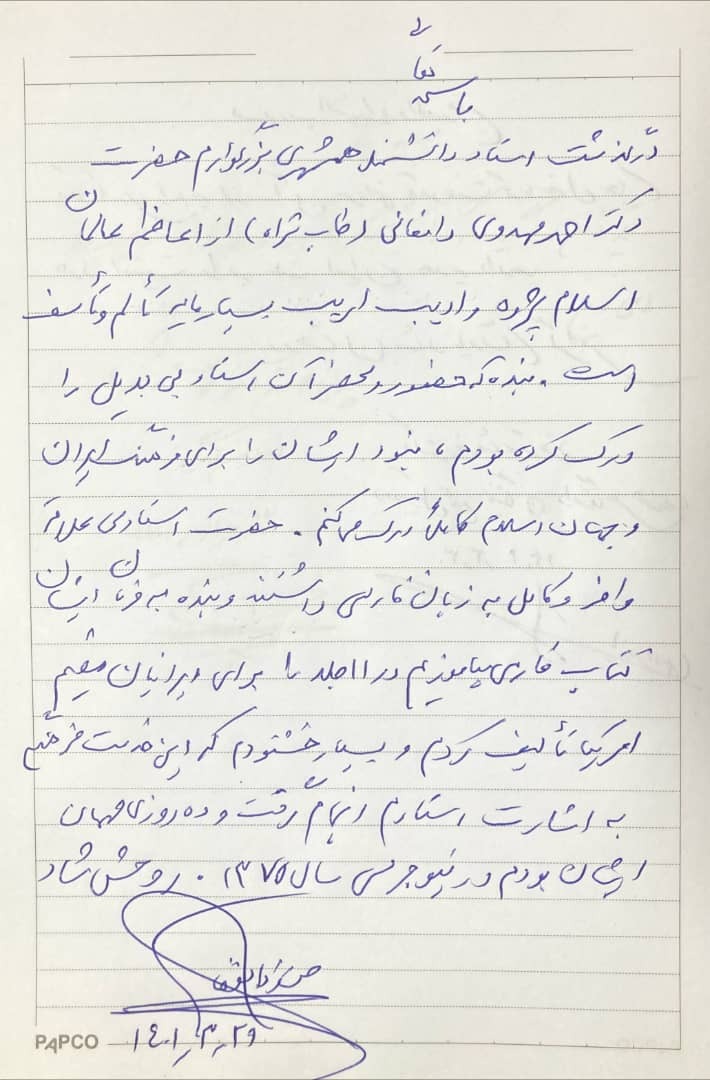 باسمه تعالی
درگذشت استاد دانشمند همشهری بزرگوارم حضرت
دکتر احمد مهدوی دامغانی (طاب ثراه) از اعاظم عالمان
اسلام پژوه و ادیب اریب بسیار مایه تألم و تأسف
است. بنده که حضور و محضر آن استاد بی بدیل را
درک کرده بودم، نبود ایشان را برای فرهنگ ایران
و جهان اسلام کاملاً درک میکنم. حضرت استادی علاقه
وافر و کامل به زبان فارسی داشتند و بنده به فرمان ایشان
کتاب فارسی بیاموزیم در ۱۱ جلد را برای ایرانیان مقیم
امریکا تألیف کردم و بسیار خشنودم که این خدمت فرهنگی
به اشارت استادم انجام گرفت و ده روزی مهمان
ایشان بودم در نیوجرسی سال ۱۳۷۵. روحش شاد
۱۴۰۱٫۳٫۲۹
PAPCO